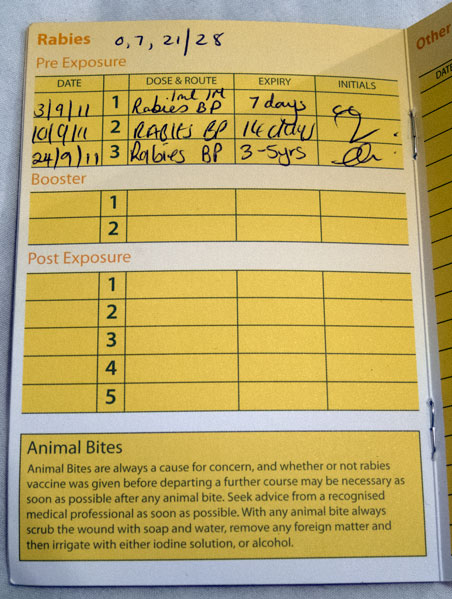 Rabies 0, 7, 21/28
Pre Exposure
DATE DOSE & ROUTE EXPIRY INITIALS
3/9/11 1 1ml IM Rabies BP 7 days
10/9/11 2 RABIES BP 14 days
24/9/11 3 Rabies BP 3-5yrs
Booster
1
2
Post Exposure
1
2
3
4
5
Animal Bites
Animal Bites are always a cause for concern, and whether or not rabies
vaccine was given before departing a further course may be necessary as
soon as possible after any animal bite. Seek advice from a recognised
medical professional as soon as possible. With any animal bite always
scrub the wound with soap and water, remove any foreign matter and
then irrigate with either iodine solution, or alcohol.
Other
DATE